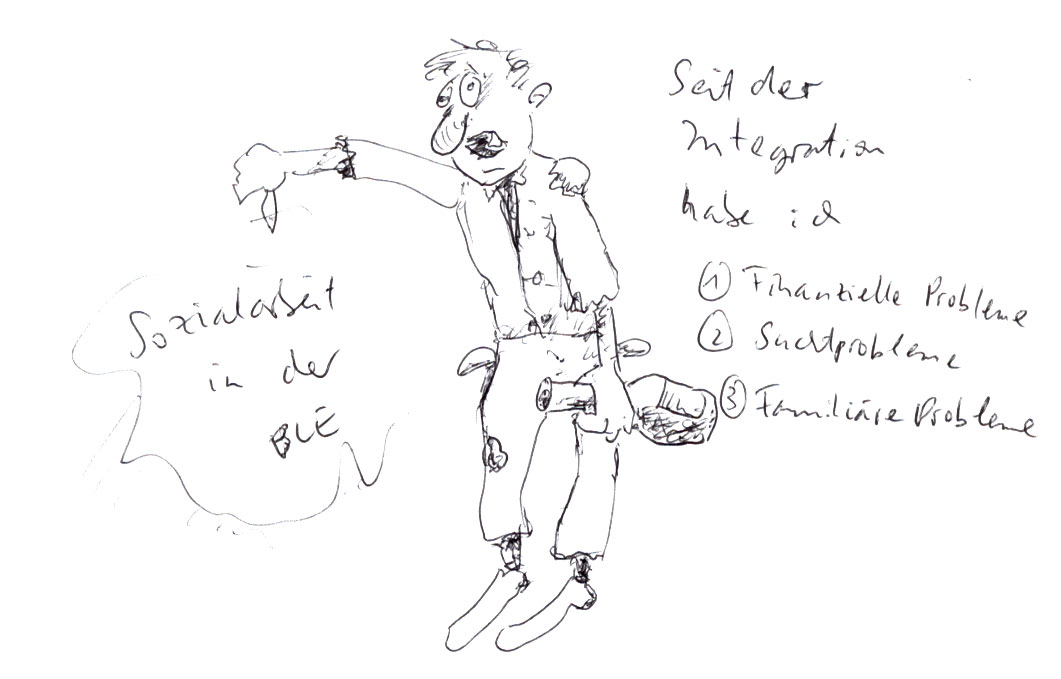 Seit der
Integration
habe ich
① Finanzielle Probleme
② Suchtprobleme
③ Familiäre Probleme
Sozialarbeit
in der
BLE